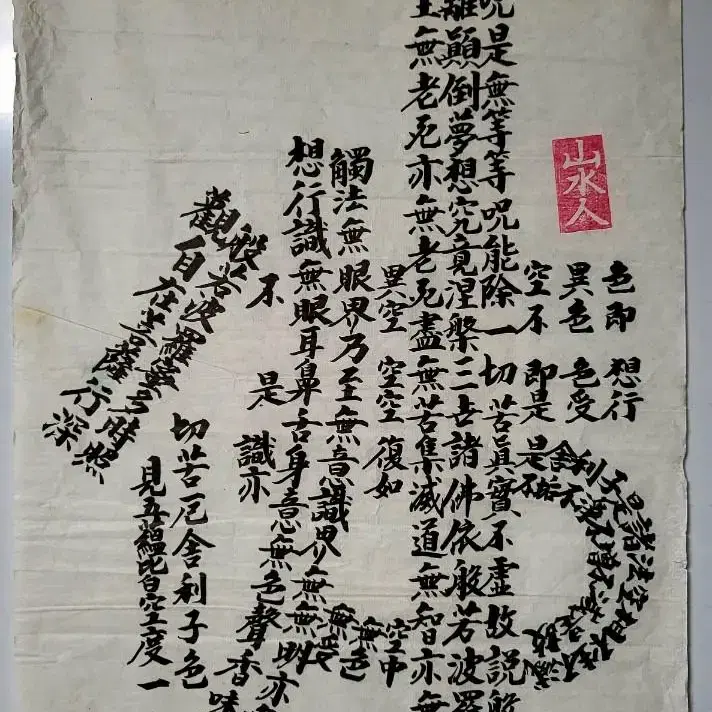 觀自在菩薩行深
般若波羅蜜多時照
見五蘊皆空度一
切苦厄舍利子色
不異空空不異色色即
是空空即是色受想行
識亦復如是
舍利子是諸法空相
空中無色無受
想行識無眼耳鼻舌身意無色聲香味
觸法無眼界乃至無意識界無無明亦
無老死亦無老死盡無苦集滅道無知亦無
離顛倒夢想究竟涅槃三世諸佛依般若波羅
呪是無等等呪能除一切苦眞實不虛故說般
山水人